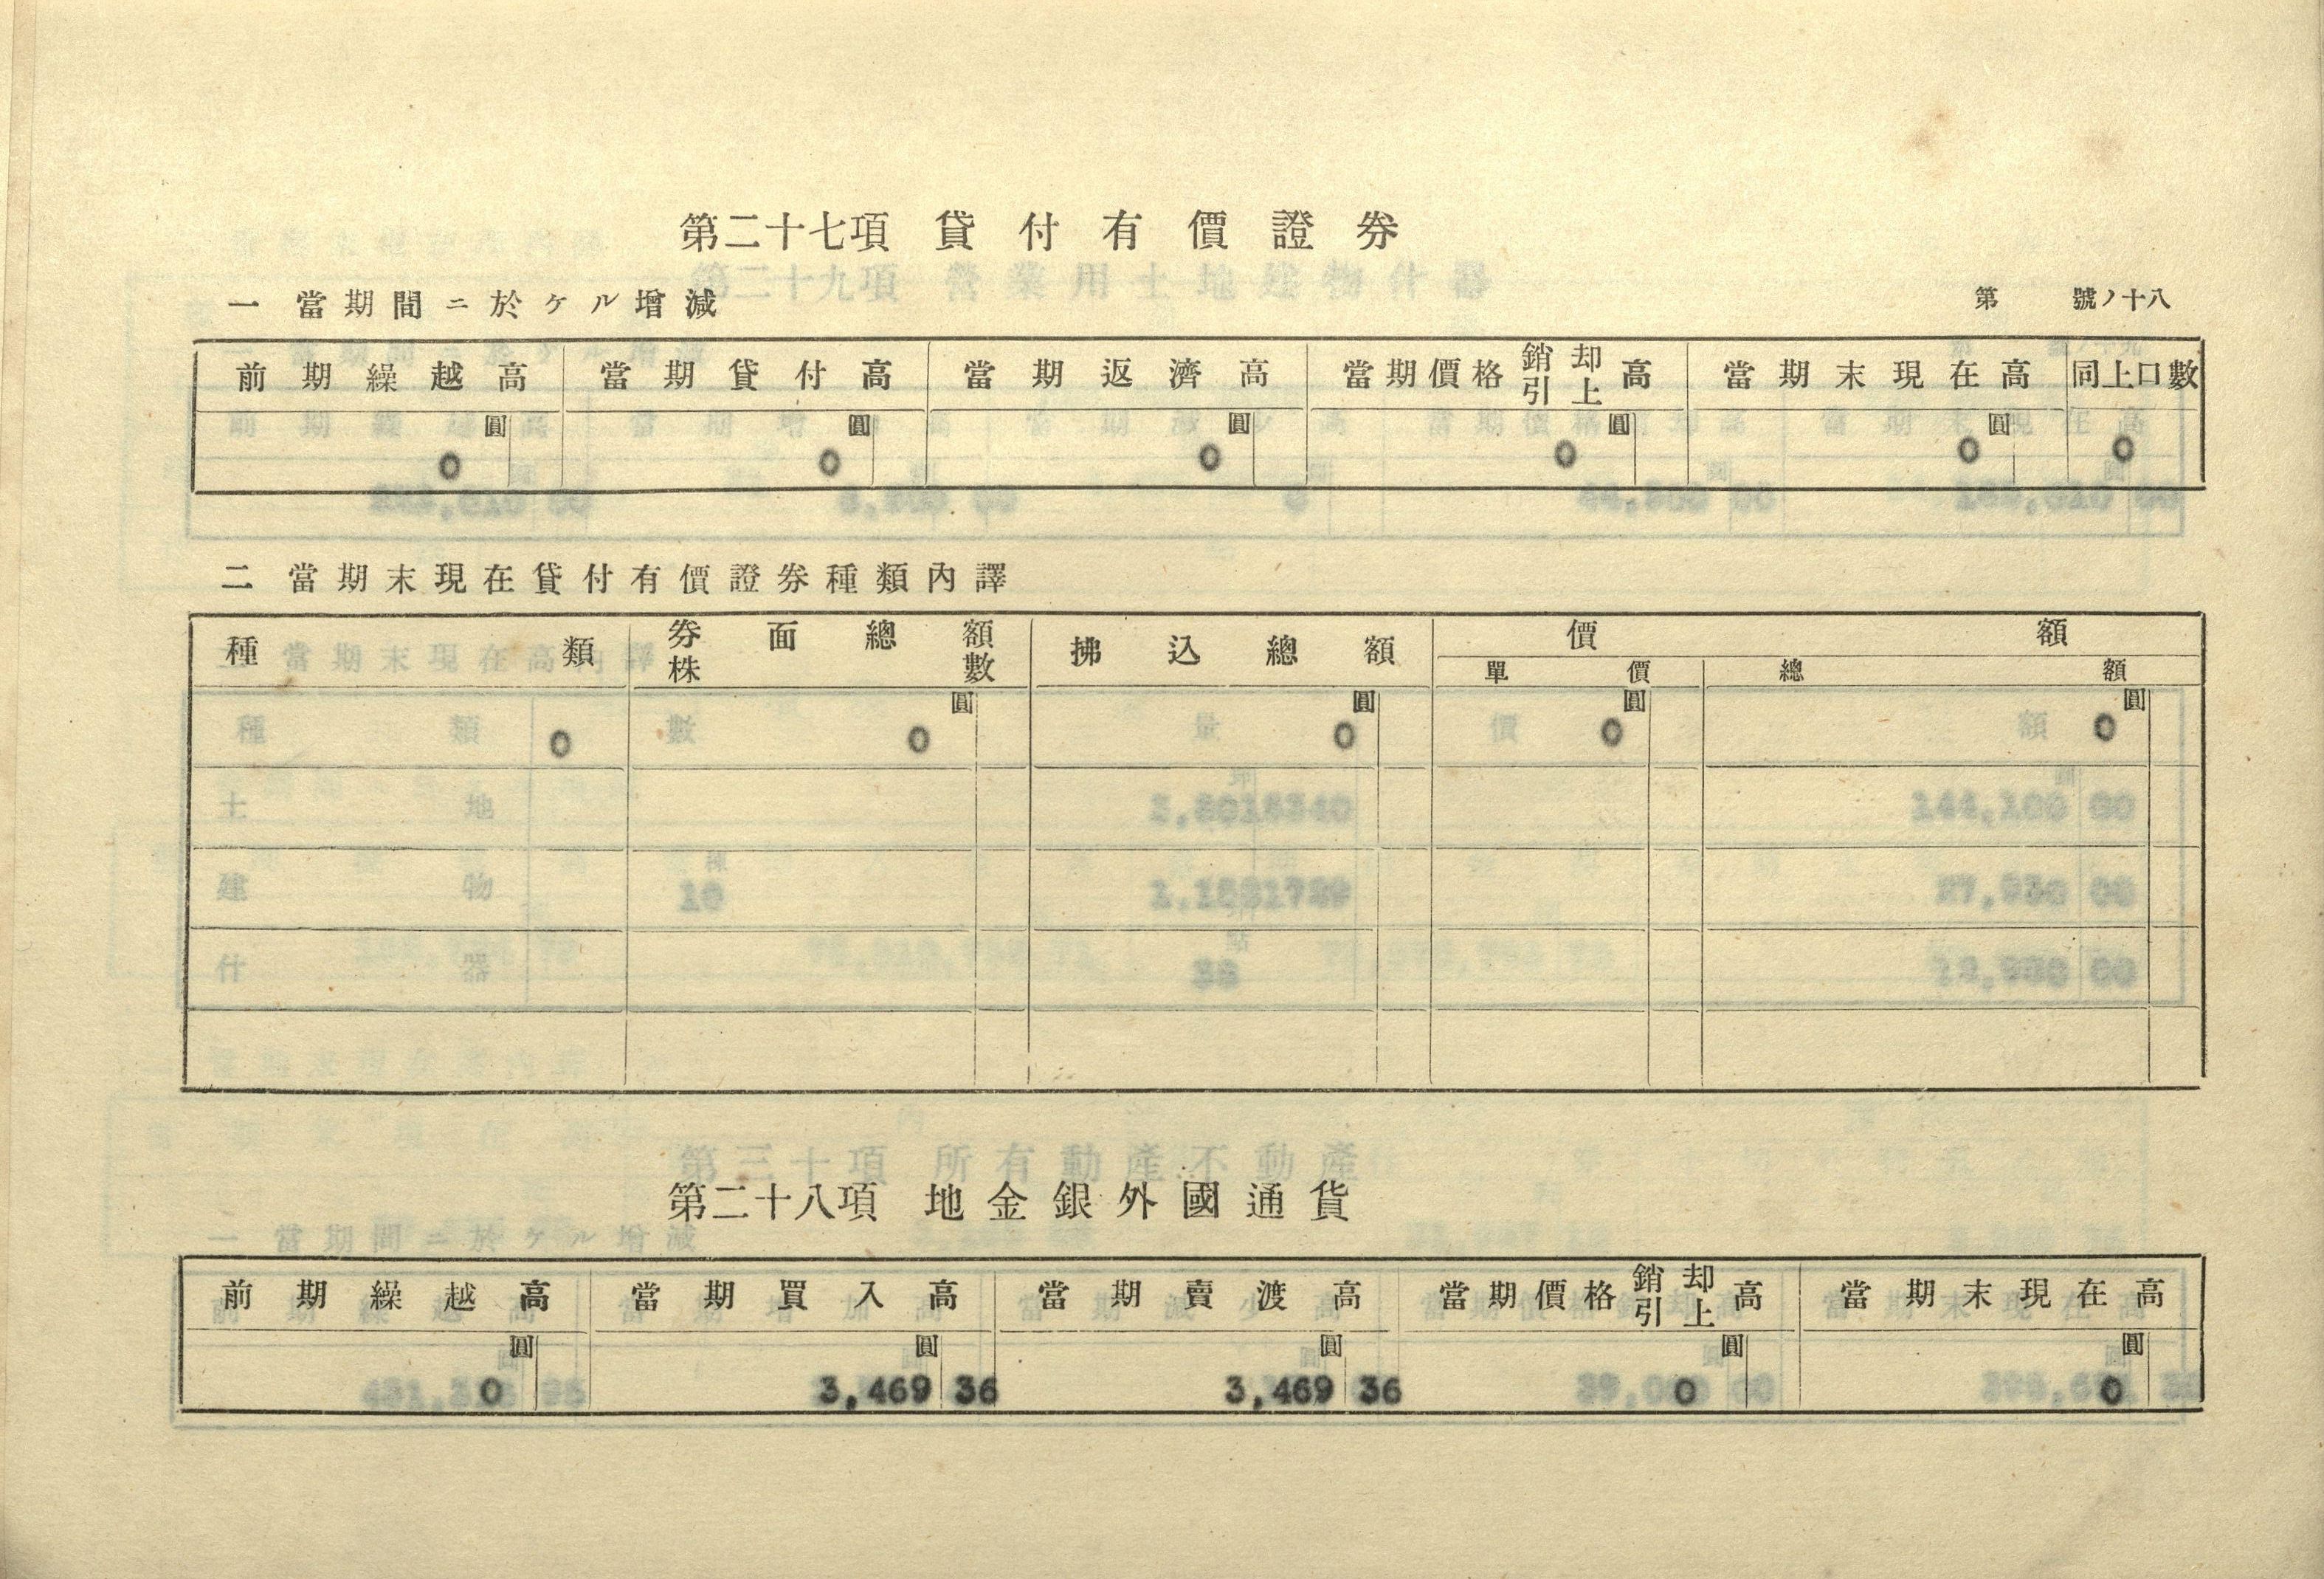 第二十七項 貸付有價證券
一 當期間ニ於ケル增減
第 號ノ十八
前期繰越高 當期貸付高 當期返濟高 當期價格銷却引上高 當期末現在高 同上口數
圓 圓 圓 圓 圓
0 0 0 0 0 0
二 當期末現在貸付有價證券種類內譯
種類 券面總額株數 拂込總額 價額
單價 總額
圓 圓 圓 圓
0 0 0 0 0
第二十八項 地金銀外國通貨
前期繰越高 當期買入高 當期賣渡高 當期價格銷却引上高 當期末現在高
圓 圓 圓 圓 圓
0 3,469 36 3,469 36 0 0